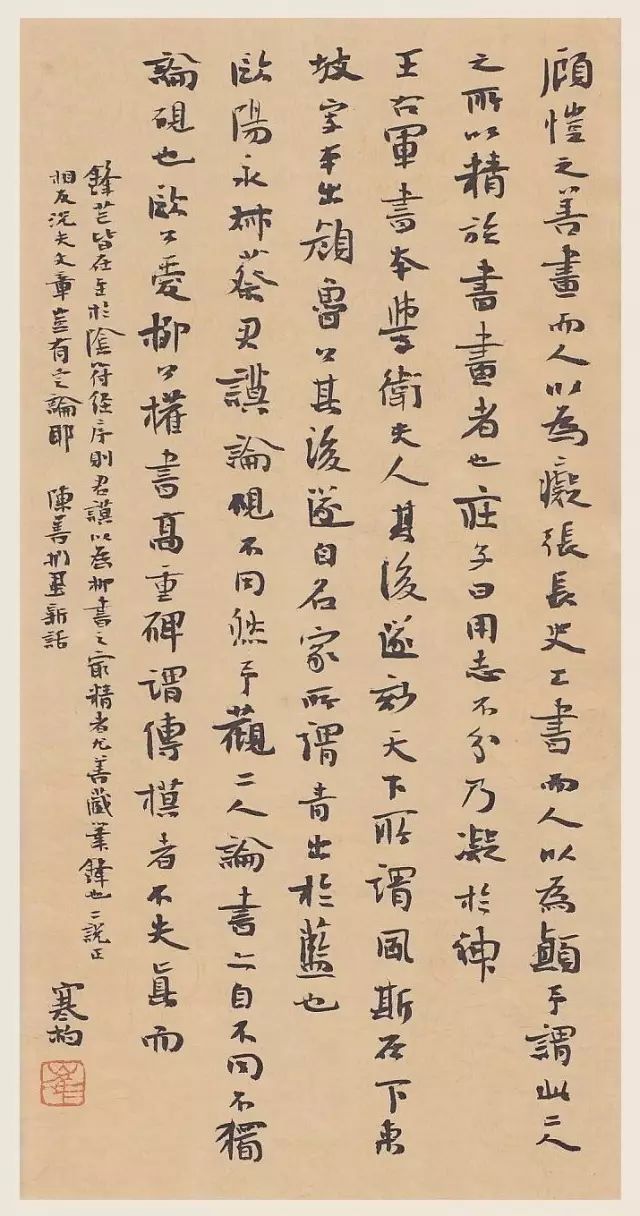 顧愷之善畫而人以為癡張長史工書而人以為顛予謂此二人
之所以精於書畫者也莊子曰用志不分乃凝於神
王右軍書本學衛夫人其後遂妙天下所謂風斯在下東
坡字本出顏魯公其後遂自名家所謂青出於藍也
歐陽永叔蔡君謨論硯不同然予觀二人論書亦自不同不獨
論硯也歐公愛柳公權書高重碑謂傳模者不失真而
鋒芒皆在至於陰符經序則君謨以為柳書之最精者尤善藏筆鋒也二說正
相反況夫文章豈有定論耶 陳善捫蝨新話
寒柏